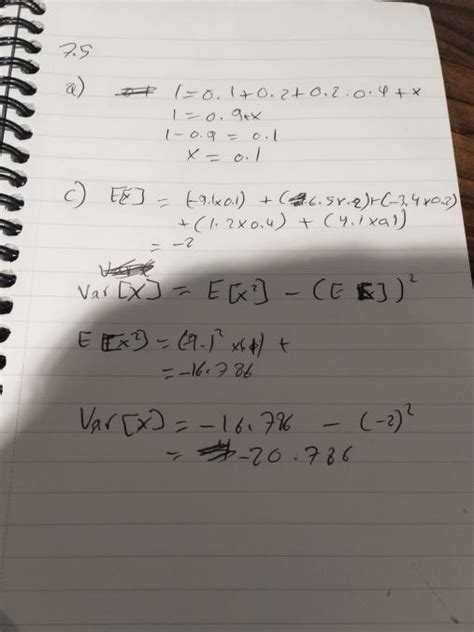 7.5
a) 1=0.1+0.2+0.2.0.4+x
1=0.9+x
1-0.9=0.1
x=0.1
c) E[X] = (-9.1x0.1) + (-6.5x.2)+(-3.4x0.2)
+(1.2x0.4) + (4.1x0.1)
= -2
Var[X] = E[x²] - (E[X])²
E[x²] = (-9.1² x0.1) +
= -16.786
Var[X] = -16.786 - (-2)²
= -20.786